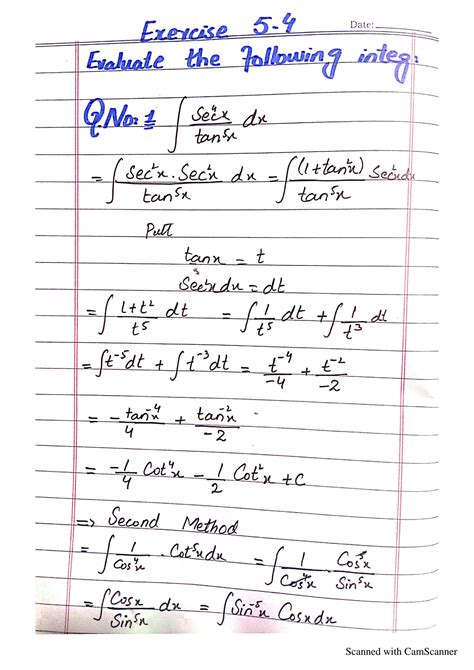 Exercise 5-4 Date:
Evaluate the following integ:
Q No: 1 ∫ Sec⁴x / tan⁵x dx
= ∫ Sec²x . Sec²x / tan⁵x dx = ∫ (1+tan²x) Sec²x dx / tan⁵x
Put
tanx = t
Sec²x dx = dt
= ∫ 1+t² / t⁵ dt = ∫ 1/t⁵ dt + ∫ 1/t³ dt
= ∫ t⁻⁵ dt + ∫ t⁻³ dt = t⁻⁴/-4 + t⁻²/-2
= - tan⁻⁴x / 4 + tan⁻²x / -2
= -1/4 Cot⁴x - 1/2 Cot²x + C
=> Second Method
= ∫ 1/Cos⁴x . Cot⁵x dx = ∫ 1/Cos⁴x . Cos⁵x / Sin⁵x
= ∫ Cosx / Sin⁵x dx = ∫ Sin⁻⁵x Cosx dx
Scanned with CamScanner